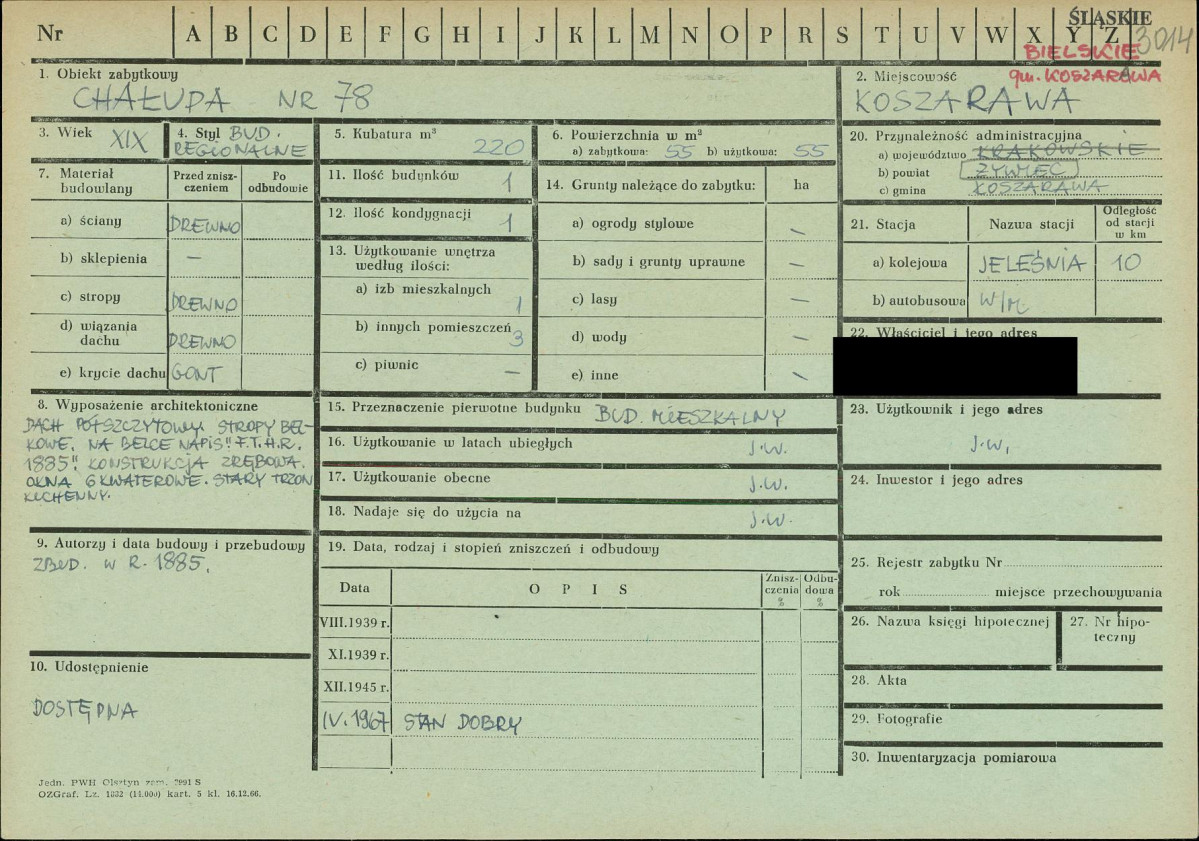 Nr A B C D E F G H I J K L M N O P R S T U V W X Y Z
ŚLĄSKIE
3014
BIELSKIE
gm. KOSZARAWA
1. Obiekt zabytkowy
CHAŁUPA NR 78
2. Miejscowość
KOSZARAWA
3. Wiek XIX
4. Styl BUD.
REGIONALNE
5. Kubatura m³
220
6. Powierzchnia w m²
a) zabytkowa: 55 b) użytkowa: 55
7. Materiał
budowlany
Przed znisz-
czeniem
Po
odbudowie
a) ściany DREWNO
b) sklepienia —
c) stropy DREWNO
d) wiązania
dachu DREWNO
e) krycie dachu GONT
8. Wyposażenie architektoniczne
DACH PÓŁSZCZYTOWY. STROPY BEL-
KOWE. NA BELCE NAPIS: "F.T.H.R.
1885". KONSTRUKCJA ZRĘBOWA.
OKNA 6 KWATEROWE. STARY TRZON
KUCHENNY.
9. Autorzy i data budowy i przebudowy
ZBUD. W R. 1885.
10. Udostępnienie
DOSTĘPNA
11. Ilość budynków
1
12. Ilość kondygnacji
1
13. Użytkowanie wnętrza
według ilości:
a) izb mieszkalnych
1
b) innych pomieszczeń
3
c) piwnic —
14. Grunty należące do zabytku: ha
a) ogrody stylowe —
b) sady i grunty uprawne —
c) lasy —
d) wody —
e) inne —
15. Przeznaczenie pierwotne budynku BUD. MIESZKALNY
16. Użytkowanie w latach ubiegłych J.W.
17. Użytkowanie obecne J.W.
18. Nadaje się do użycia na J.W.
19. Data, rodzaj i stopień zniszczeń i odbudowy
Data
O P I S
Znisz-
czenia
%
Odbu-
dowa
%
VIII.1939 r.
XI.1939 r.
XII.1945 r.
IV.1967 STAN DOBRY
20. Przynależność administracyjna
a) województwo KRAKOWSKIE
b) powiat ŻYWIEC
c) gmina KOSZARAWA
21. Stacja
Nazwa stacji
Odległość
od stacji
w km
a) kolejowa JELEŚNIA 10
b) autobusowa W/M.
22. Właściciel i jego adres
23. Użytkownik i jego adres
J.W.
24. Inwestor i jego adres
25. Rejestr zabytku Nr
rok miejsce przechowywania
26. Nazwa księgi hipotecznej
27. Nr hipo-
teczny
28. Akta
29. Fotografie
30. Inwentaryzacja pomiarowa
Jedn. PWH Olsztyn zam. 2991 S
OZGraf. Lz. 1832 (14.000) kart. 5 kl. 16.12.66.